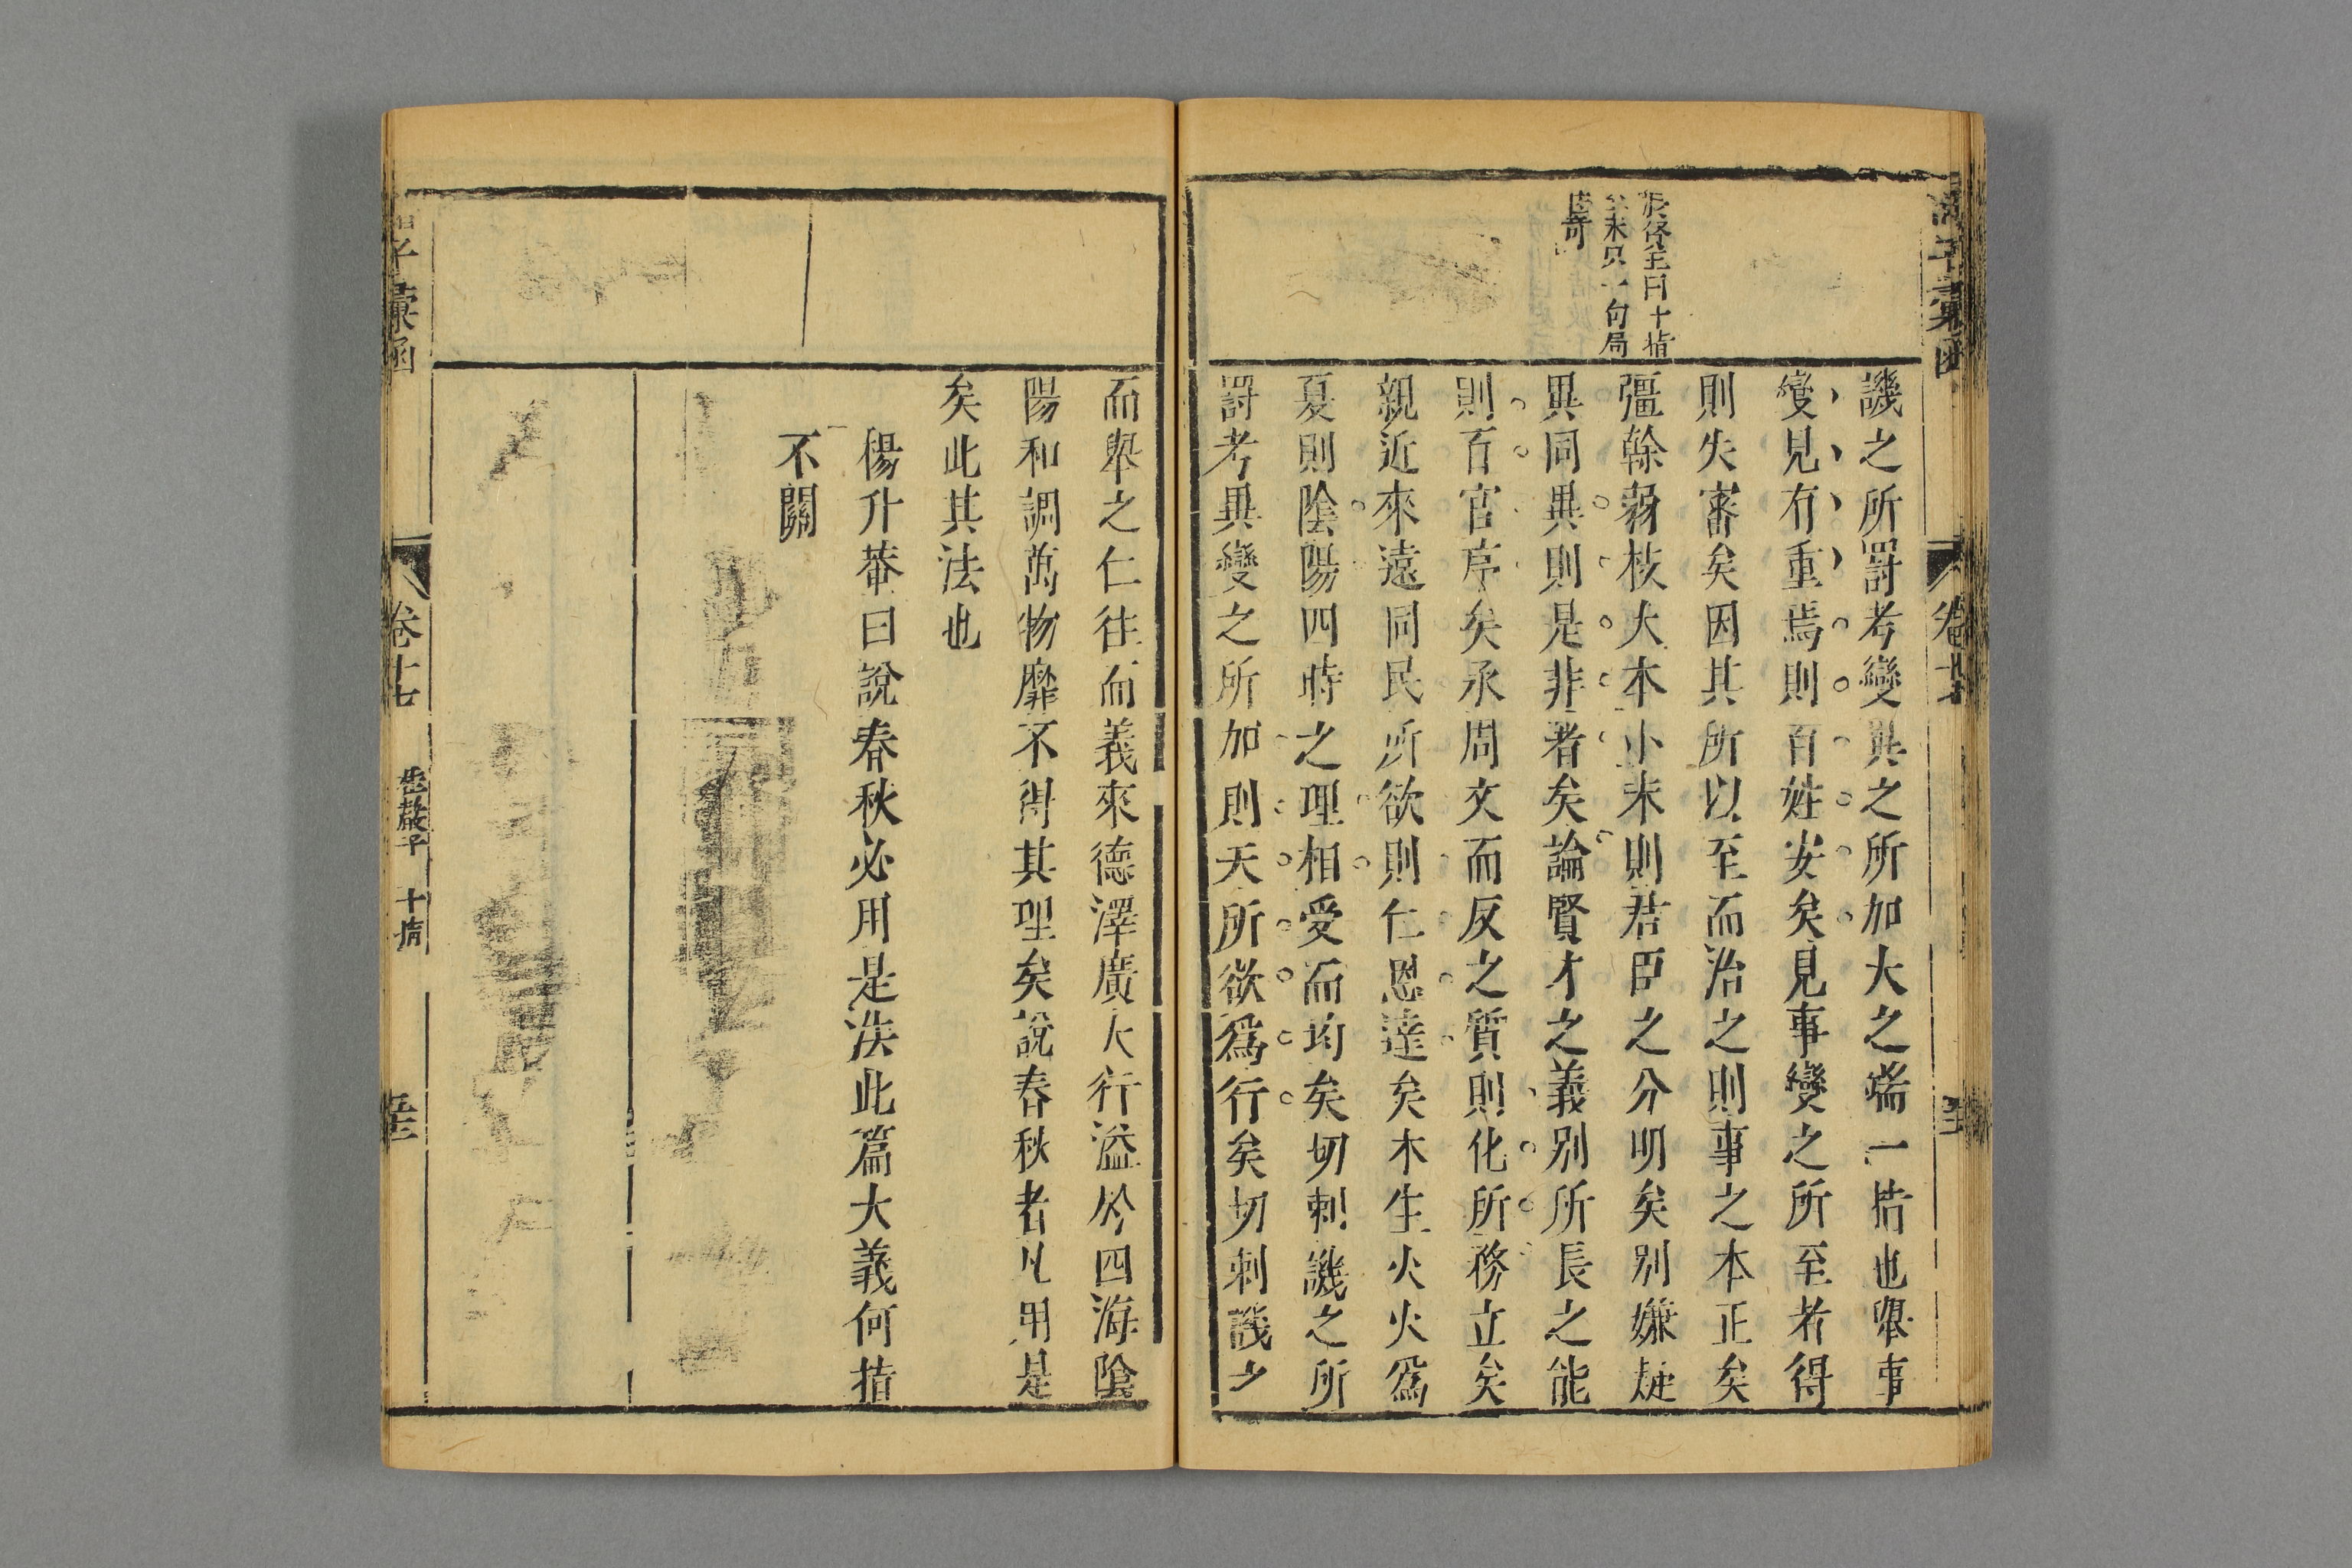 張侗初曰十指
公未只一句局
陡奇
譏之所罰考變異之所加大之端一指也舉事
變見有重焉則百姓安矣見事變之所至者得
則失審矣因其所以至而治之則事之本正矣
彊幹弱枝大本小末則君臣之分明矣別嫌疑
異同異則是非著矣論賢才之義別所長之能
則百官序矣承周文而反之質則化所務立矣
親近來遠同民所欲則仁恩達矣木生火火爲
夏則陰陽四時之理相受而均矣切刺譏之所
罰考異變之所加則天所欲爲行矣切刺譏之
而舉之仁往而義來德澤廣大行溢於四海陰
陽和調萬物靡不得其理矣說春秋者凡用是
矣此其法也
楊升菴曰說春秋必用是法此篇大義何指
不關
卷十七
十指